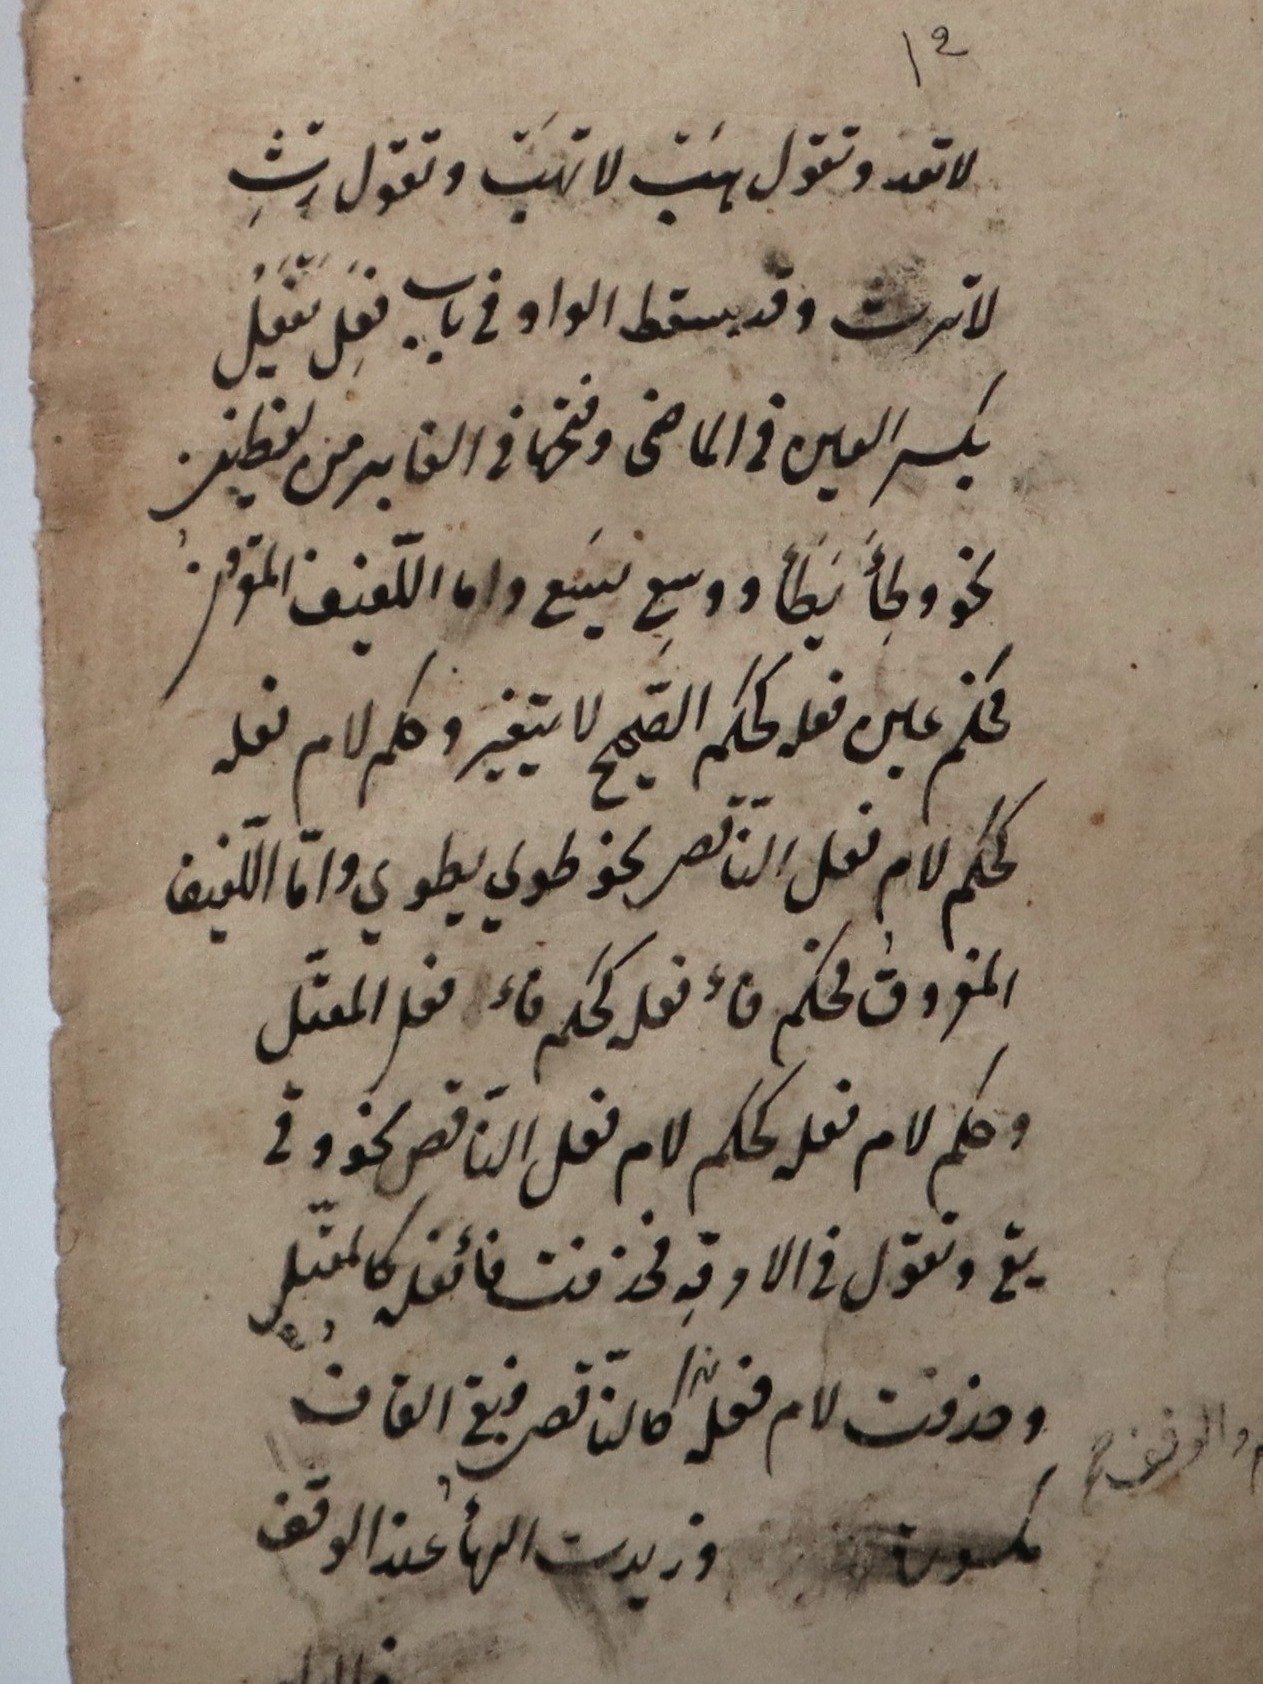 ١٢
لا تعد وتقول هَبْ لا تَهَبْ وتقول رِثْ
لا ترث وقد يسقط الواو في باب فعِل يَفْعَلُ
بكسر العين في الماضى وفتحها في الغابر من لفظين
نحو وطِئَ يَطَأ ووسِع يسَع واما اللّفيف المقرون
فحكم عين فعله كحكم الصّحيح لا يتغير وحكم لام فعله
كحكم لام فعل النّاقص نحو طوي يطوي وامّا اللّفيف
المفروق فحكم فاء فعله كحكم فاء فعل المعتّل
وحكم لام فعله كحكم لام فعل النّاقص نحو وقى
يقي وتقول في الامر قِه فحذفت فاء فعله كالمعتّل
وحذفت لام فعله كالنّاقص فبقى القاف
مكسورة وزيدت الهأ عند الوقف